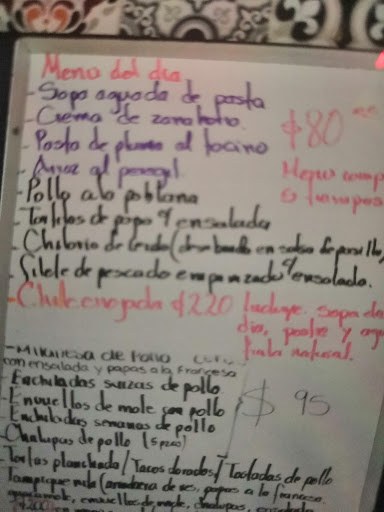 Menu del dia
- Sopa aguada de pasta
- Crema de zanahoria
- Pasta de pluma al tocino
- Arroz al perejil
$80
Menu comp
3 tiempos
- Pollo a la poblana
- Tortitas de papa y ensalada
- Chicharron de cerdo (desebrado en salsa de
- Filete de pescado empanizado y ensalada.
- Chile enojada $220 Incluye. sopa del
dia, postre y agua
fruta natural.
- Milanesa de Pollo
con ensalada y papas a la francesa
- Enchiladas suizas de pollo
- Envueltos de mole con pollo
- Enchiladas semanas de pollo
$ 95
- Chalupas de pollo (5 pzas)
- Tortas planchada / Tacos dorados / Tostadas de pollo
Tampiqueña (arrachera de res, papas a la francesa
guacamole, envueltos de mole, chalupas, ensalada
$200